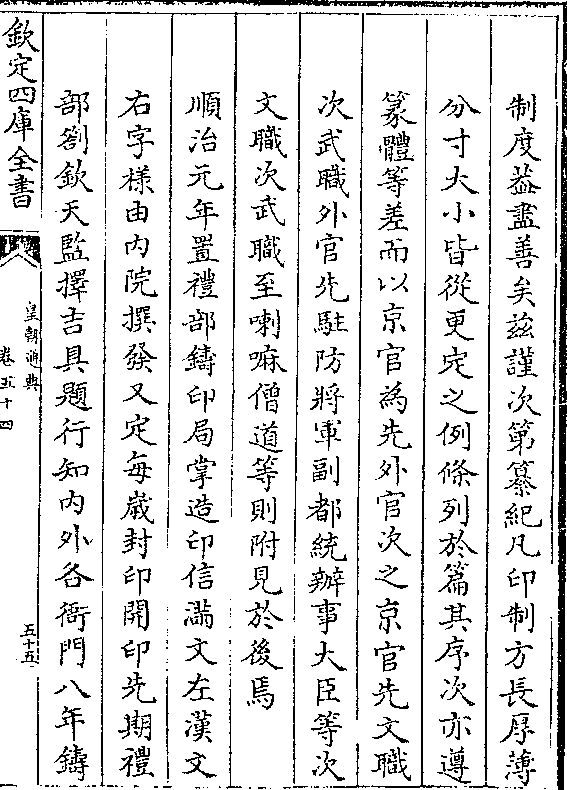 制度益盡善矣兹謹次第纂紀凡印制方長厚薄
分寸大小皆從更定之例條列於篇其序次亦遵
篆體等差而以京官為先外官次之京官先文職
次武職外官先駐防將軍副都統辦事大臣等次
文職次武職至喇嘛僧道等則附見於後焉
順治元年置禮部鑄印局掌造印信滿文左漢文
右字樣由内院撰發又定每歲封印開印先期禮
部劄欽天監擇吉具題行知内外各衙門八年鑄
欽定四庫全書
皇朝通典
卷五十四
五十五